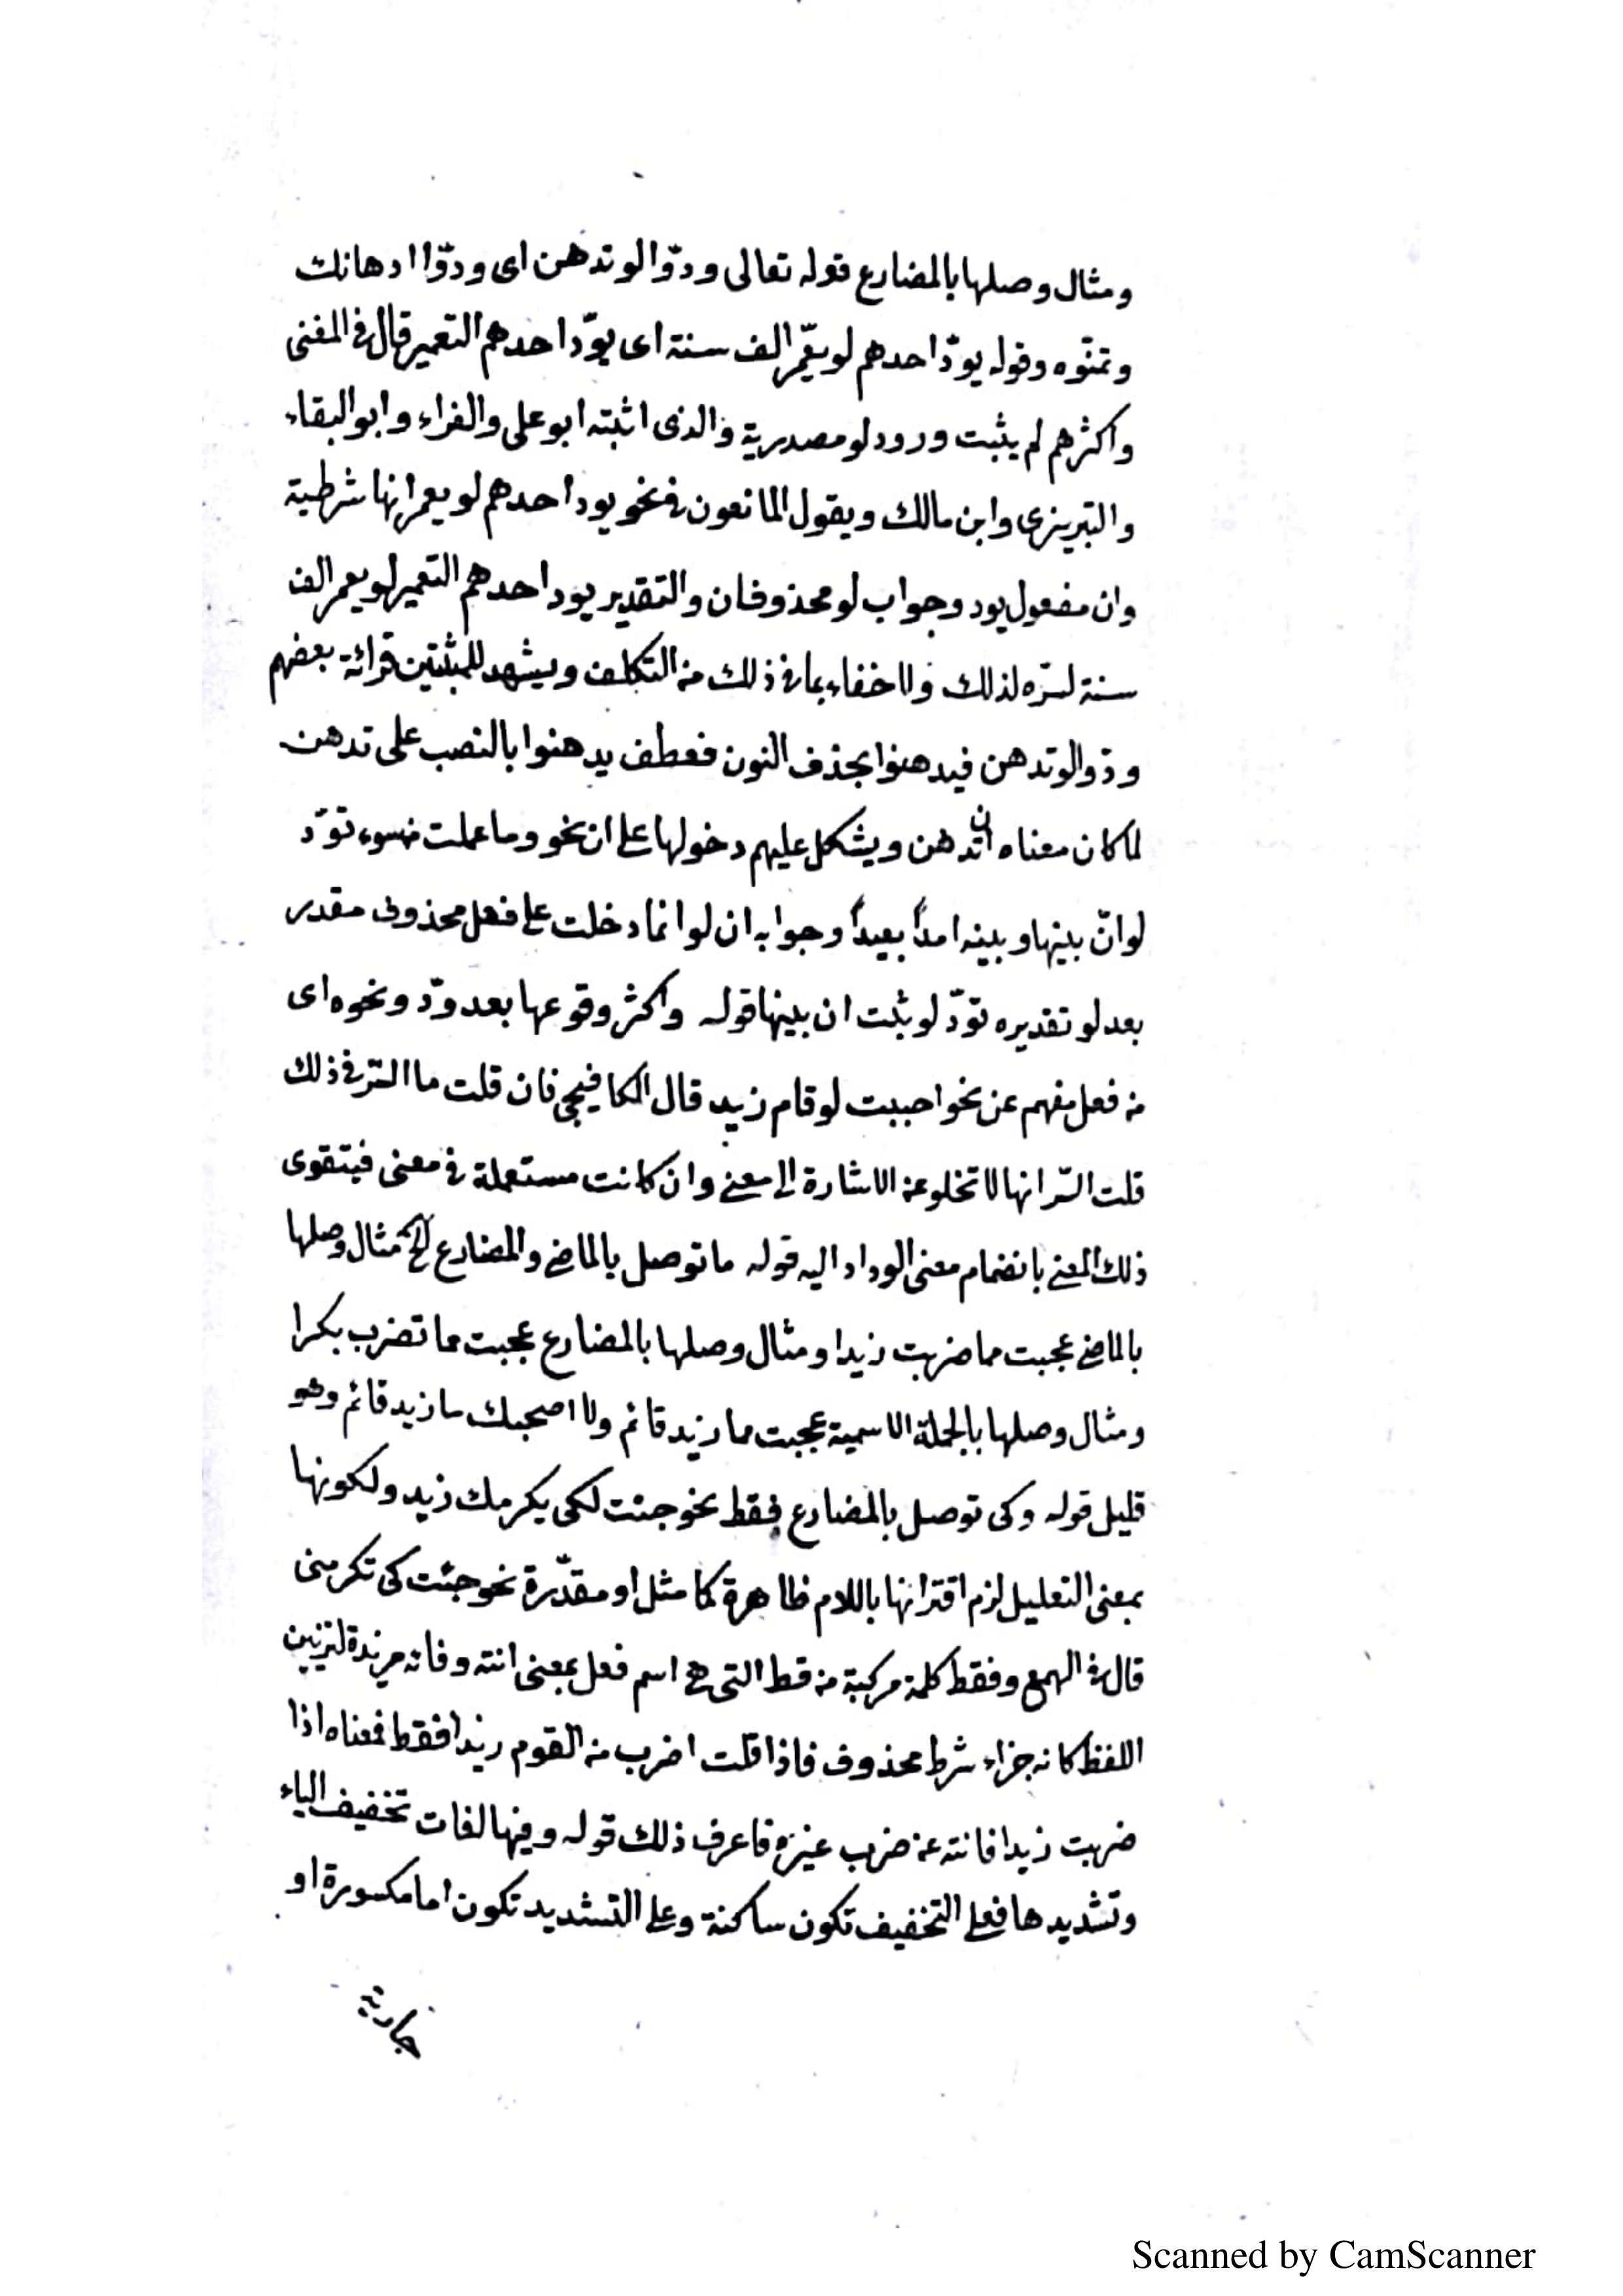 ومثال وصلها بالمضارع قوله تعالى ودّوا لو تدهن اى ودّوا ادهانك
وتمنّوه وقوله يودّ احدهم لو يعمّر الف سنة اى يودّ احدهم التعمير قال فى المغنى
واكثرهم لم يثبت ورود لو مصدرية والذى اثبته ابو على والفراء وابو البقاء
والتبريزى وابن مالك ويقول المانعون فى نحو يود احدهم لو يعمر انها شرطية
وان مفعول يود وجواب لو محذوفان والتقدير يود احدهم التعمير لو يعمر الف
سنة لسرّه لذلك ولا خفاء بما فى ذلك من التكلف ويشهد للمثبتين قرائة بعضهم
ودّوا لو تدهن فيدهنوا بحذف النون فعطف يدهنوا بالنصب على تدهن
لما كان معناه ان تدهن ويشكل عليهم دخولها على ان نحو وما عملت من سوء تودّ
لو انّ بينها وبينه امداً بعيداً وجوابه ان لو انما دخلت على فعل محذوف مقدر
بعد لو تقديره تودّ لو ثبت ان بينها قوله واكثر وقوعها بعد ودّ ونحوه اى
من فعل مفهم عن نحو احببت لو قام زيد قال الكافيجى فان قلت ما السّر فى ذلك
قلت السّر انها لا تخلو عن الاشارة الى معنى وان كانت مستعملة فى معنى فيتقوى
ذلك المعنى بانضمام معنى الوداد اليه قوله ما توصل بالماضى والمضارع الخ مثال وصلها
بالماضى عجبت مما ضربت زيدا ومثال وصلها بالمضارع عجبت مما تضرب بكرا
ومثال وصلها بالجملة الاسمية عجبت مما زيد قائم ولا اصحبك ما زيد قائم وهو
قليل قوله وكى توصل بالمضارع فقط نحو جئت لكى يكرمك زيد ولكونها
بمعنى التعليل لزم اقترانها باللام ظاهرة كما مثل او مقدّرة نحو جئت كى تكرمنى
قال فى الهمع وفقط كلمة مركبة من قط التى هى اسم فعل بمعنى انته وفائه مزيدة لتزيين
اللفظ كانه جزاء شرط محذوف فاذا قلت اضرب من القوم زيدا فقط فمعناه اذا
ضربت زيدا فانته عن ضرب غيره فاعرف ذلك قوله وفيها لغات تخفيف الياء
وتشديدها فعلى التخفيف تكون ساكنة وعلى التشديد تكون اما مكسورة او
جارية
Scanned by CamScanner